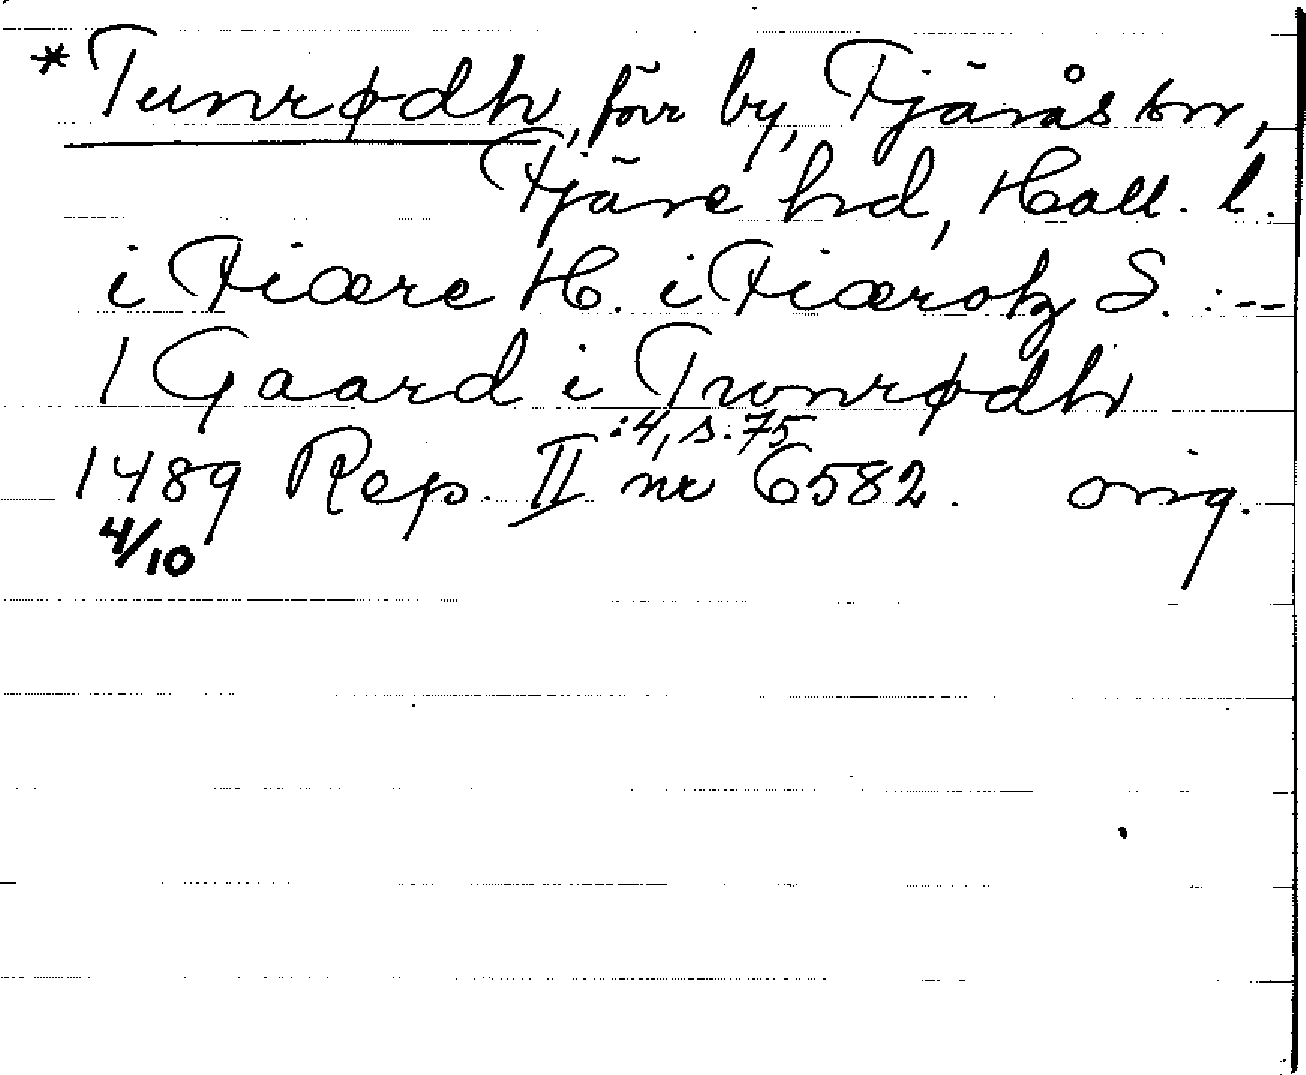 * Tunrødh, förr by, Fjärås sn,
Fjäre hd, Hall. l.
i Fiære H. i Fiærotz S. :--
1 Gaard i Twnrødh
:4, s. 75
1489 Rep. II nr 6582. orig.
4/10